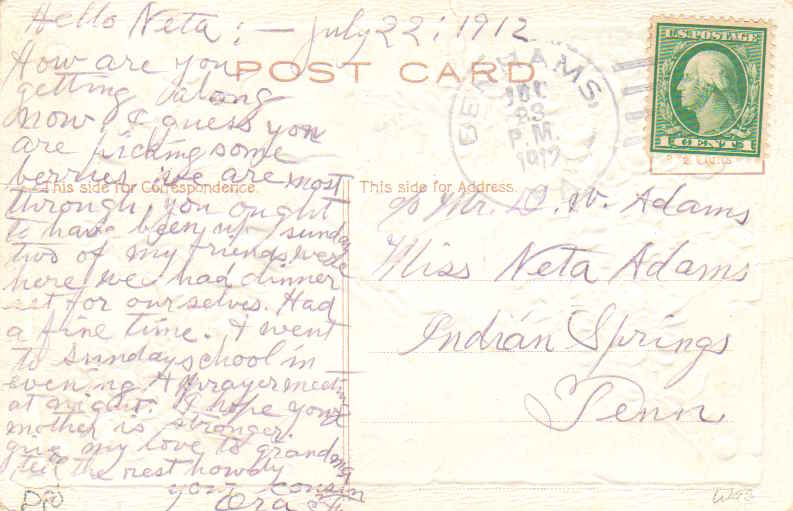 Hello Neta; — July 22, 1912
How are you
getting along
now I guess you
are picking some
berries we are most
through, you ought
to have been up sunday
two of my friends were
here we had dinner
set for ourselves. Had
a fine time. I went
to Sunday school in
evening & prayer meetin
at night. I hope your
mother is stronger.
give my love to grandma
tell the rest howdy
your cousin
Ora
POST CARD
This side for Correspondence.
This side for Address.
ADAMS,
JUL
23
P.M.
1912
U.S. POSTAGE
1 CENT 1
c/o Mr. D. W. Adams
Miss Neta Adams
Indian Springs
Tenn
DPO